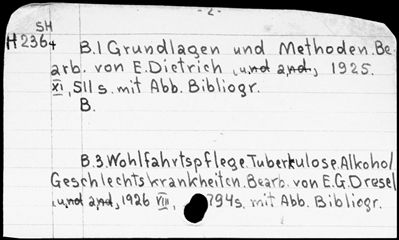 - 2 -
SH
H2364
B.1 Grundlagen und Methoden. Be
arb. von E. Dietrich (und and), 1925.
XI, 511 s. mit Abb. Bibliogr.
B.
B.3. Wohlfahrtspflege. Tuberkulose. Alkohol
Geschlechtskrankheiten. Bearb. von E.G. Dresel
(und and), 1926 VIII, 794s. mit Abb. Bibliogr.